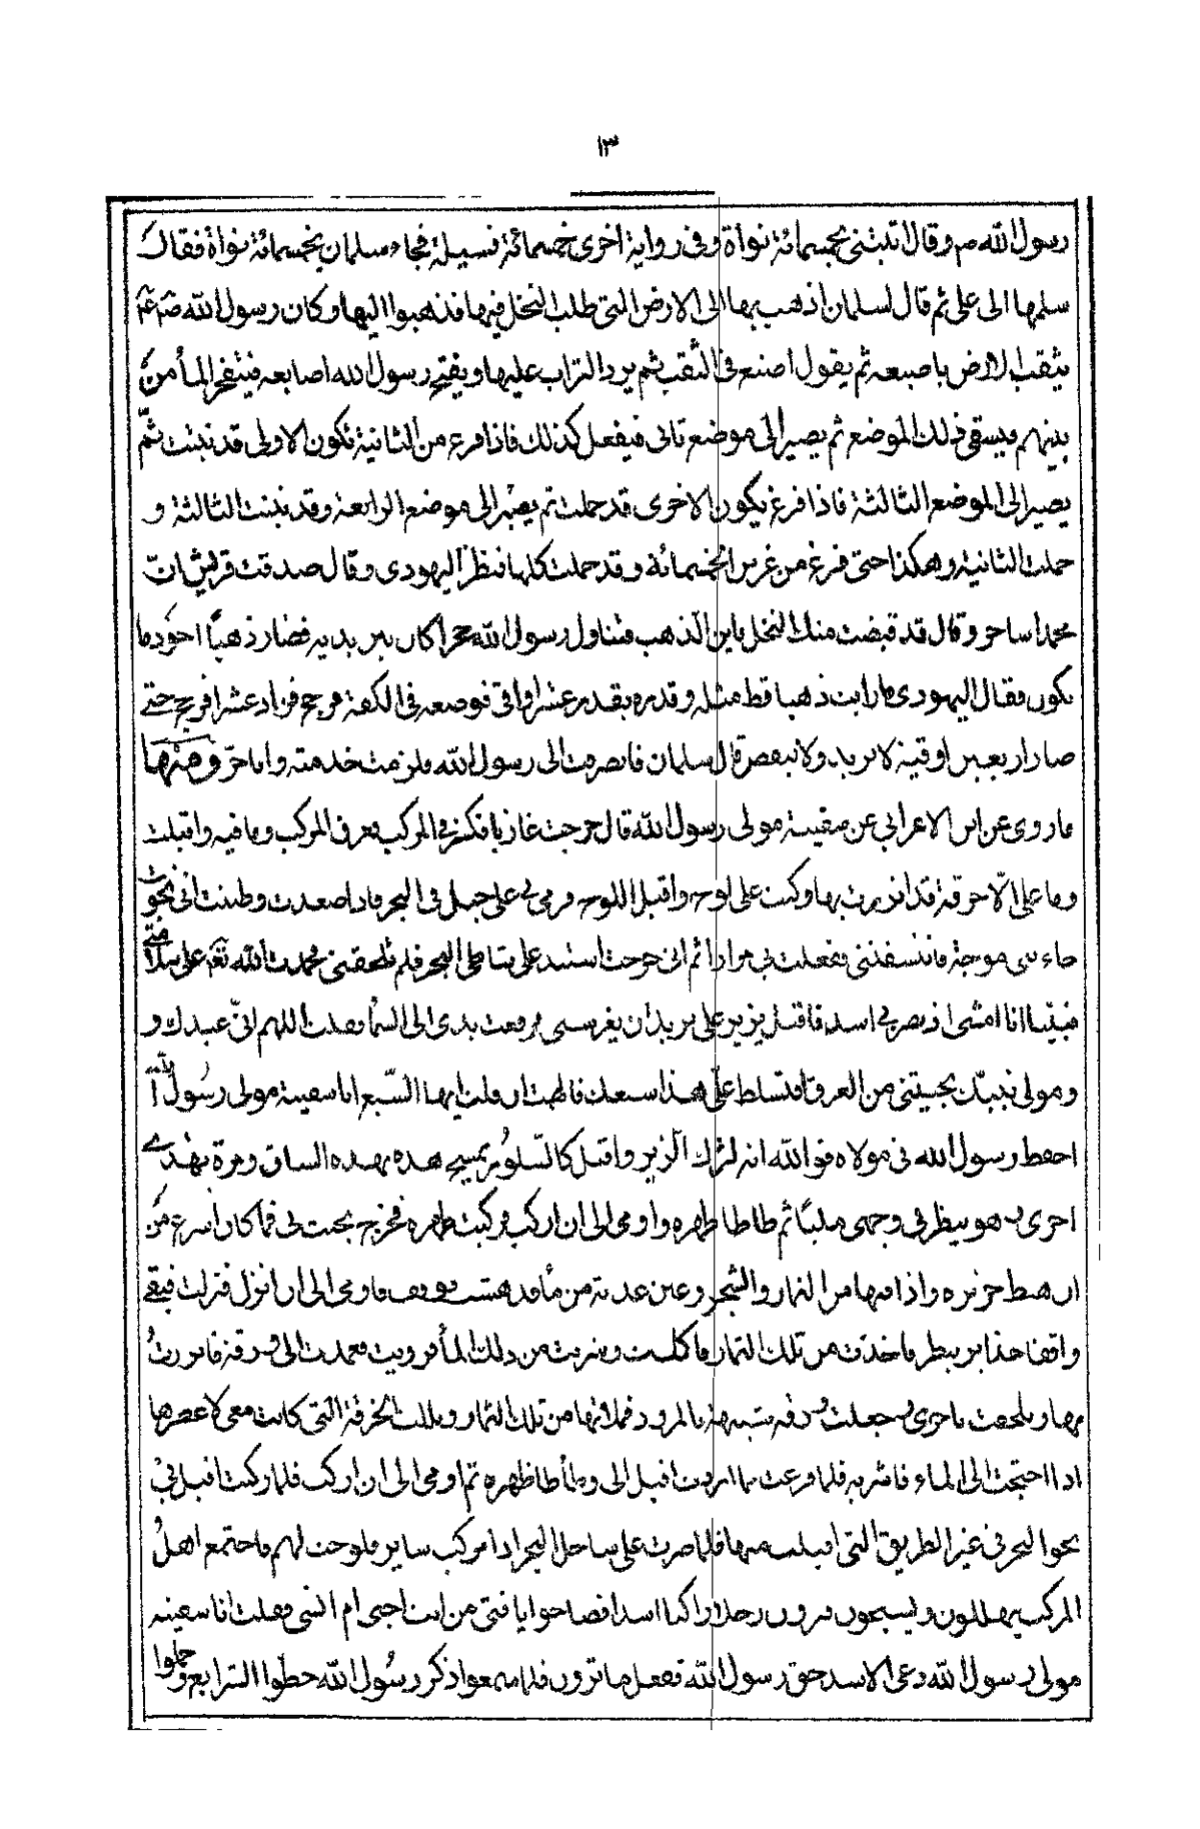 ١٣
رسول الله ص و قال تلتني بخمسمائة نواة و في رواية اخرى خمسمائة فسيلة فجاء سلمان بخمسمائة نواة فقال
سلمها الى على ثم قال لسلمان اذهب بها الى الارض التى طلب النخل فيها فذهبوا اليها و كان رسول الله
يثقب الارض باصبعه ثم يقول اصنع فى الثقب ثم يرد التراب عليها و يفتح رسول الله اصابعه فينفجر الماء من
بينهم فيسقى ذلك الموضع ثم يصير الى موضع ثانى فيفعل كذلك فاذا فرغ من الثانية تكون الاولى قد نبتت ثمّ
يصير الى الموضع الثالثة فاذا فرغ يكون الاخرى قد حملت ثم يصير الى موضع الرابعة و قد نبتت الثالثة و
حملت الثانية و هكذا حتى فرغ من غرس الخمسمائة و قد حملت كلها فنظر اليهودى و قال صدقت قريش ان
محمدا ساحر و قال قد قبضت منك النخل فاين الذهب فتناول رسول الله حجرا كان بين يديه فصار ذهبًا اجود ما
يكون فقال اليهودى ما رايت ذهبا قط مثله و قدره بقدر عشر اواقى فوضعه فى الكفة فرجح فزاد عشرا فرجح حتى
صار اربعين اوقية لا يزيد و لا ينقص قال سلمان فانصرفت الى رسول الله فلزمت خدمته و انا حرّ و منها
ما روى عن ابن الاعرابى عن سفينة مولى رسول الله قال خرجت غازيا فكسر فى المركب فغرق المركب و ما فيه و اقبلت
و ما علىّ الّا خرقة قد اتزرت بها و كنت على لوح و اقبل اللوح فرمى بى على جبل فى البحر فاذا صعدت و ظننت انى نجوت
جاءتنى موجة فانتسفتنى ففعلت بى مرارا ثم انى خرجت استند على شاطى البحر فلم تلحقنى فحمدت الله على سلامتى
فبينا انا امشى اذ بصر بى اسد فاقبل يزير على يريد ان يفرسنى فرفعت يدى الى السماء فقلت اللهم انى عبدك و
و مولى نبيّك نجيتنى من الغرق افتسلط علىّ هذا سبعك فالهمت ان قلت ايها السّبع انا سفينة مولى رسول الله
احفظ رسول الله فى مولاه فو الله انه لترك الزير و اقبل كالسّنّور يمسح خده بهذه الساق و مرة بهذه
اخرى و هو ينظر فى وجهى مليًا ثم طاطا ظهره و اومى الى ان اركب فركبت ظهره فخرج يخب بى فما كان اسرع من
ان هبط جزيرة و اذا فيها من الثمار و الشجر و عين عذبة من ماء فدهشت فوقف و اومى الى ان انزل فنزلت فبقى
واقفا حذايى ينظر فاخذت من تلك الثمار فاكلت و شربت من ذلك الماء فرويت فعمدت الى ورقة فاتزرت
بها و تلحفت باخرى و جعلت ورقة شبيهة بالمزود فملأتها من تلك الثمار و بللت الخرقة التى كانت معى لاعصرها
اذا احتجت الى الماء فاشربه فلما فرغت مما اردت اقبل الى و طأطأ ظهره ثم اومى الى ان اركب فلما ركبت اقبل بى
نحو البحر فى غير الطريق التى اقبلت منها فلما صرت على ساحل البحر اذا مركب ساير فلوحت لهم فاجتمع اهل
المركب يهللون و يسبحون و يرون رجلا راكبا اسدا فصاحوا يا فتى من انت اجنى ام انسى فقلت انا سفينة
مولى رسول الله رعى الاسد حق رسول الله ففعل ما ترون فلما سمعوا ذكر رسول الله حطوا الشراع و حملوا